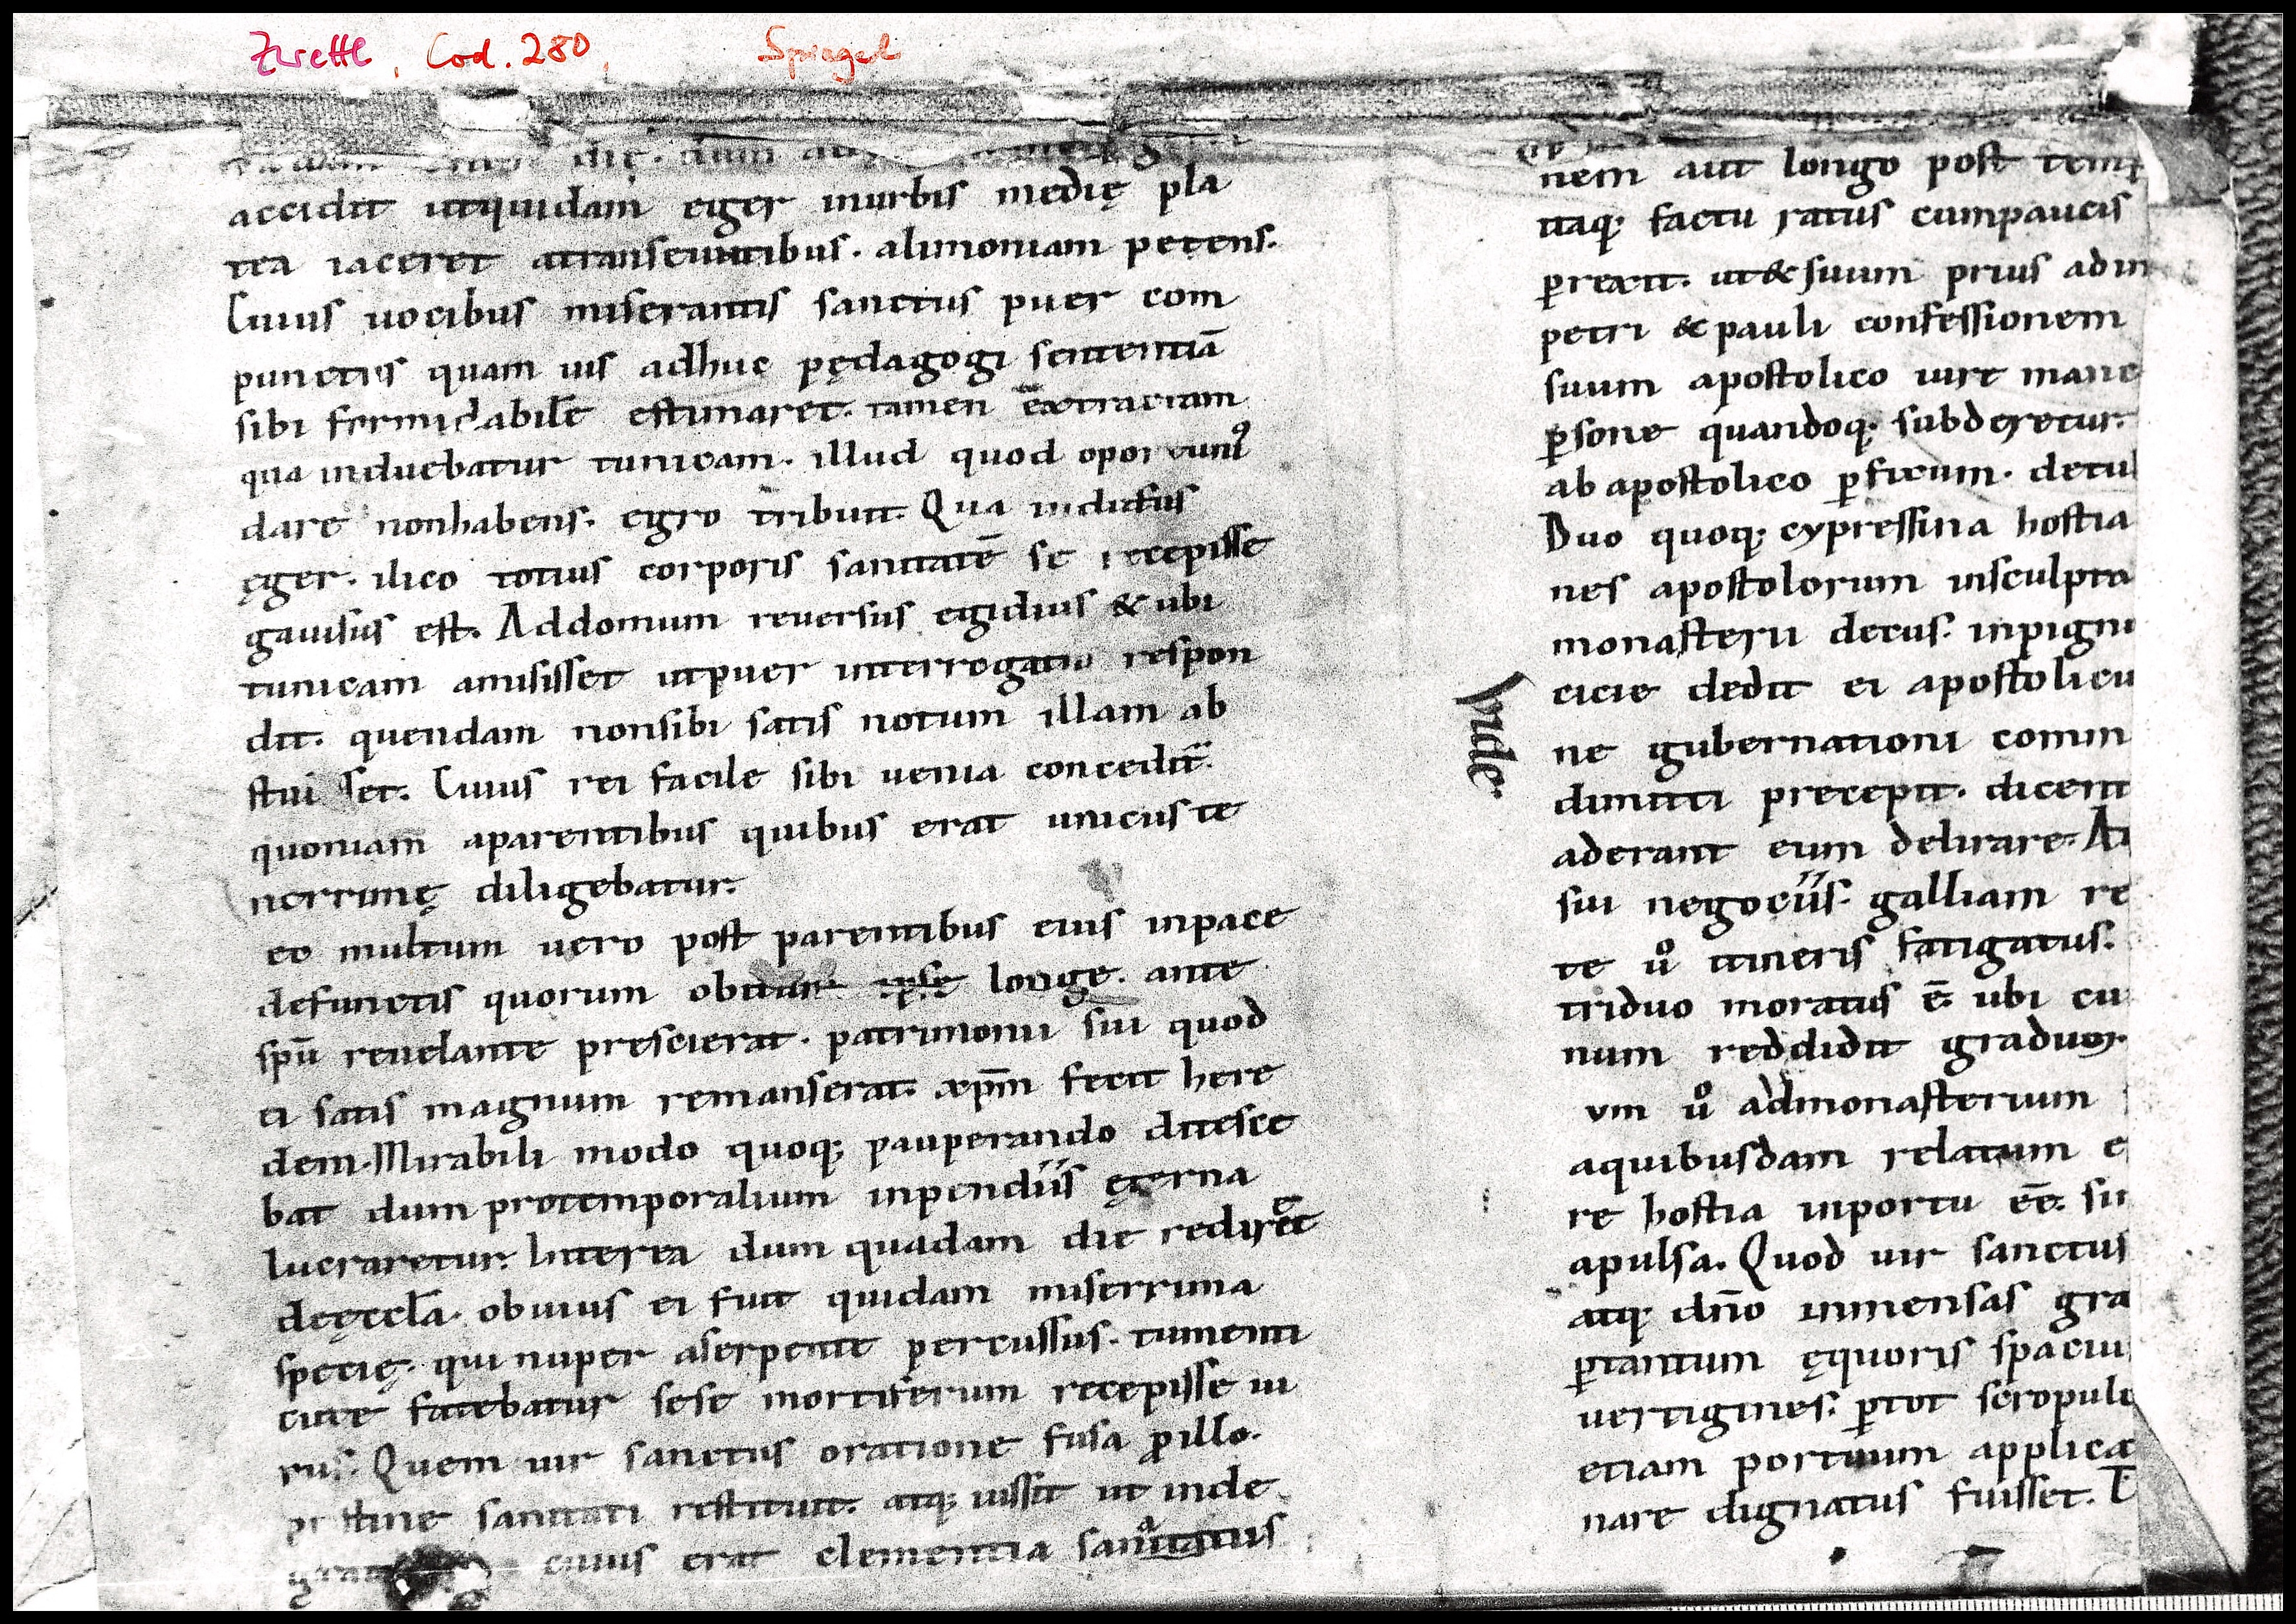 Zwettl, Cod. 280, Spiegel
die. dum
accidit utquidam eger inurbis medię pla
tea iaceret atranseuntibus. alimoniam petens.
Cuius uocibus miserantis sanctus puer com
punctus quam uis adhuc pędagogi sententiā
sibi formidabilē estimaret. tamen extractam
qua induebatur tunicam. illud quod oportunꝰ
dare nonhabens. egro tribuit. Qua indutus
ęger. ilico totius corporis sanitatē se recepisse
gauisus est. Addomum reuersus egidius & ubi
tunicam amisisset utpuer interrogatus respon
dit. quendam nonsibi satis notum illam ab
stulisset. Cuius rei facile sibi uenia concedit̄.
quoniam aparentibus quibus erat unicus te
nerrimę diligebatur.
ec multum uero post parentibus eius inpace
defunctis quorum obitum ipse longe. ante
spū reuelante prescierat. patrimonii sui quod
ei satis magnum remanserat. xp̄m fecit here
dem. Mirabili modo quoq; pauperando ditesce
bat dum protemporalium inpendiis ęterna
lucraretur. Interea dum quadam die rediret
deęccl̄a. obuius ei fuit quidam miserrima
specię. qui nuper aserpente percussus. tumenti
cute fatebatur sese mortiferum recepisse ui
rus. Quem uir sanctus oratione fusa ꝓillo.
pristine sanitati restituit. atq; iussit ut inde
cuius erat clementia sanitatus
nem aut longo post temp
itaq; factu ratus cumpaucis
ꝑrexit. ut & suum prius adm
petri & pauli confessionem
suum apostolico iure manc
ꝑsone quandoq; subderetur.
ab apostolico ꝑficum. detul
Duo quoq; cypressina hostia
nes apostolorum insculpta
monasterii decus. inpigni
cicie dedit ei apostolicu
Vnde
ne gubernationi comm
dimitti precepit. dicent
aderant eum delirare. At
sui negociis. galliam re
te uͦ itineris fatigatus.
triduo moratus ē. ubi cu
num reddidit graduum.
vm uͦ admonasterium
aquibusdam relatum e
re hostia inportu ēē. su
apulsa. Quod uir sanctus
atq; dn̄o inmensas gra
ꝑtantum ęquoris spaciu
uertigines. ꝑtot scropulo
etiam portuum applica
nare dignatus fuisset.